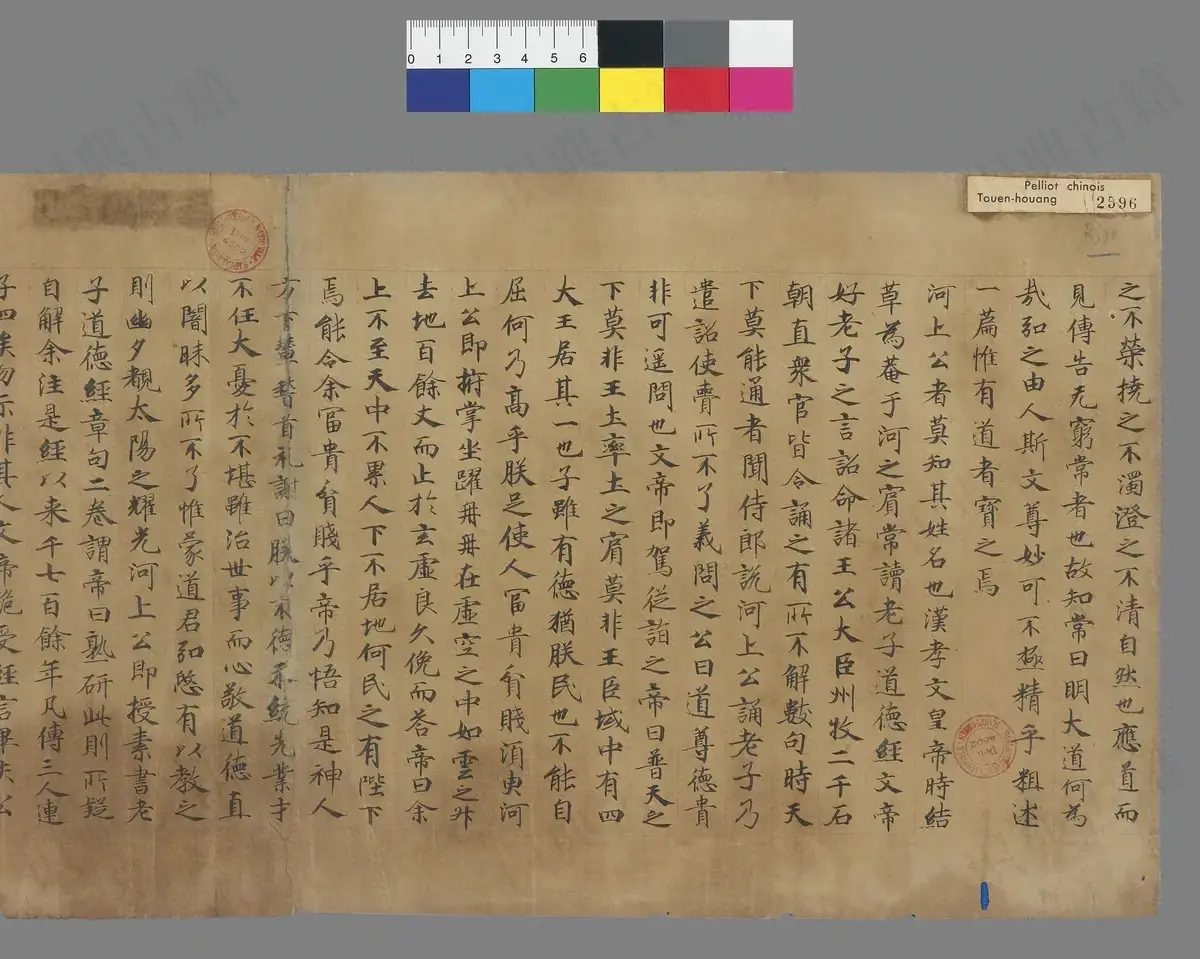 Pelliot chinois
Touen-houang 2596
0 1 2 3 4 5 6
之不榮撓之不濁澄之不清自然也應道而
見傳告无窮常者也故知常曰明大道何為
哉弘之由人斯文尊妙可不極精乎粗述
一篇惟有道者寶之焉
河上公者莫知其姓名也漢孝文皇帝時結
草為菴于河之濱常讀老子道德經文帝
好老子之言詔命諸王公大臣州牧二千石
朝直衆官皆令誦之有所不解數句時天
下莫能通者聞侍郎說河上公誦老子乃
遣詔使賷所不了義問之公曰道尊德貴
非可遥問也文帝即駕從詣之帝曰普天之
下莫非王土率土之賔莫非王臣域中有四
大王居其一也子雖有德猶朕民也不能自
屈何乃高乎朕足使人冨貴貧賤湏臾河
上公即拊掌坐躍冉冉在虛空之中如雲之升
去地百餘丈而止於玄虛良久俛而荅帝曰余
上不至天中不累人下不居地何民之有陛下
焉能令余冨貴貧賤乎帝乃悟知是神人
方下輦稽首礼謝曰朕以不德忝統先業才
不任大憂於不堪雖治世事而心敬道德直
以闇昧多所不了惟蒙道君弘愍有以教之
則幽夕覩太陽之耀光河上公即授素書老
子道德經章句二卷謂帝曰熟研此則所疑
自解余注是經以来千七百餘年凡傳三人連
子四矣勿示非其人文帝跪受經言畢失公